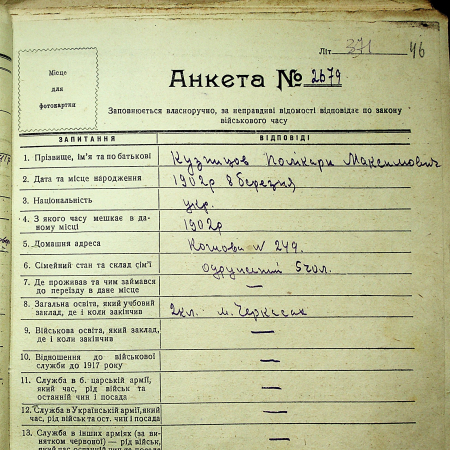 Літ 371 46
Місце
для
фотокартки
Анкета № 2679
Заповнюється власноручно, за неправдиві відомості відповідає по закону
військового часу
ЗАПИТАННЯ ВІДПОВІДІ
1. Прізвище, ім'я та по батькові Кузницов Максимович
2. Дата та місце народження 1902р 8 березня
3. Національність укр.
4. З якого часу мешкає в да-
ному місці 1902р
5. Домашня адреса № 249.
6. Сімейний стан та склад сім'ї одружений 5 чол.
7. Де проживав та чим займався
до переїзду в дане місце —
8. Загальна освіта, який учбовий
заклад, де і коли закінчив 2кл. м. Черкасах
9. Військова освіта, який заклад,
де і коли закінчив —
10. Відношення до військової
служби до 1917 року —
11. Служба в б. царській армії,
який час, рід військ та
останній чин і посада —
12. Служба в Українській армії, який
час, рід військ та ост. чин і посада —
13. Служба в інших арміях (за ви-
нятком червоної) — рід військ,
який час, останній чин та посада —